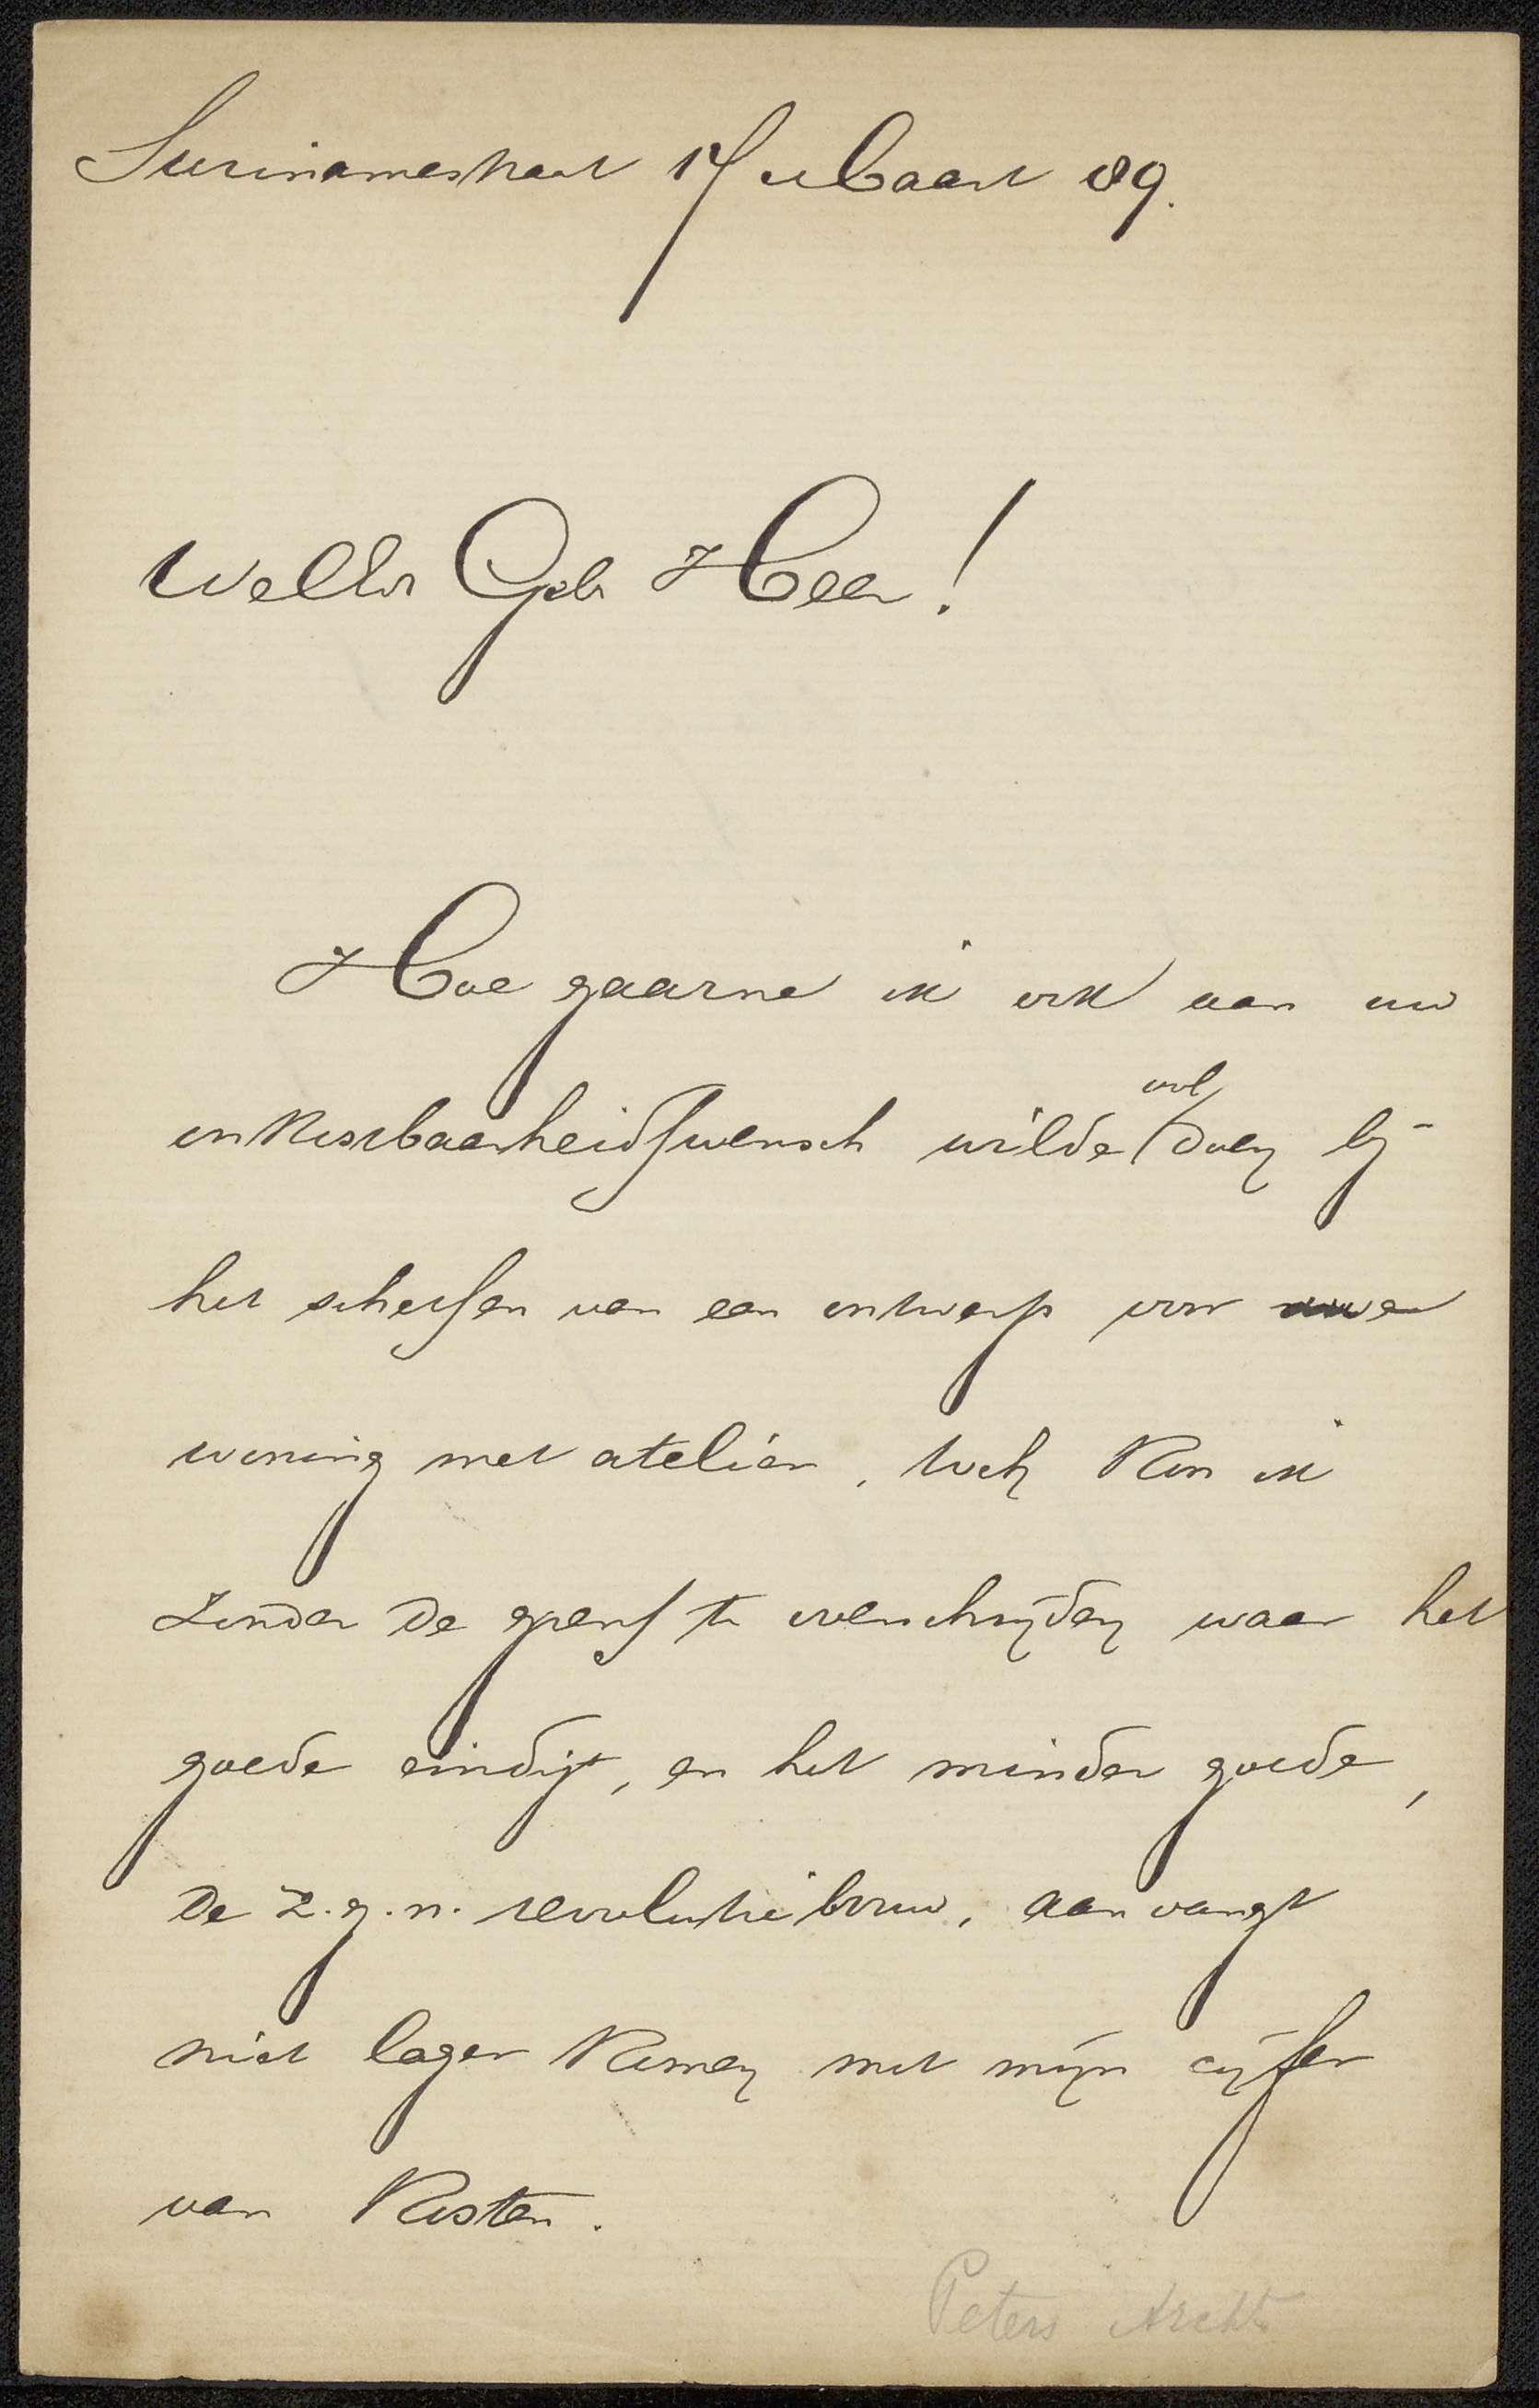 Surinamestraat 17 Maart 89.
WelEd Geb Heer!
Hoe gaarne ik ook aan uw
onkostbaarheidswensch wilde vol doen bij
het schetsen van een ontwerp voor uwe
woning met atelier, toch kon ik
zonder de grens te overschrijden waar het
goede eindigt, en het minder goede,
de z.g.n. revolutiebouw, aanvangt
niet lager komen met mijn cijfer
van kosten.
Peters Archt.